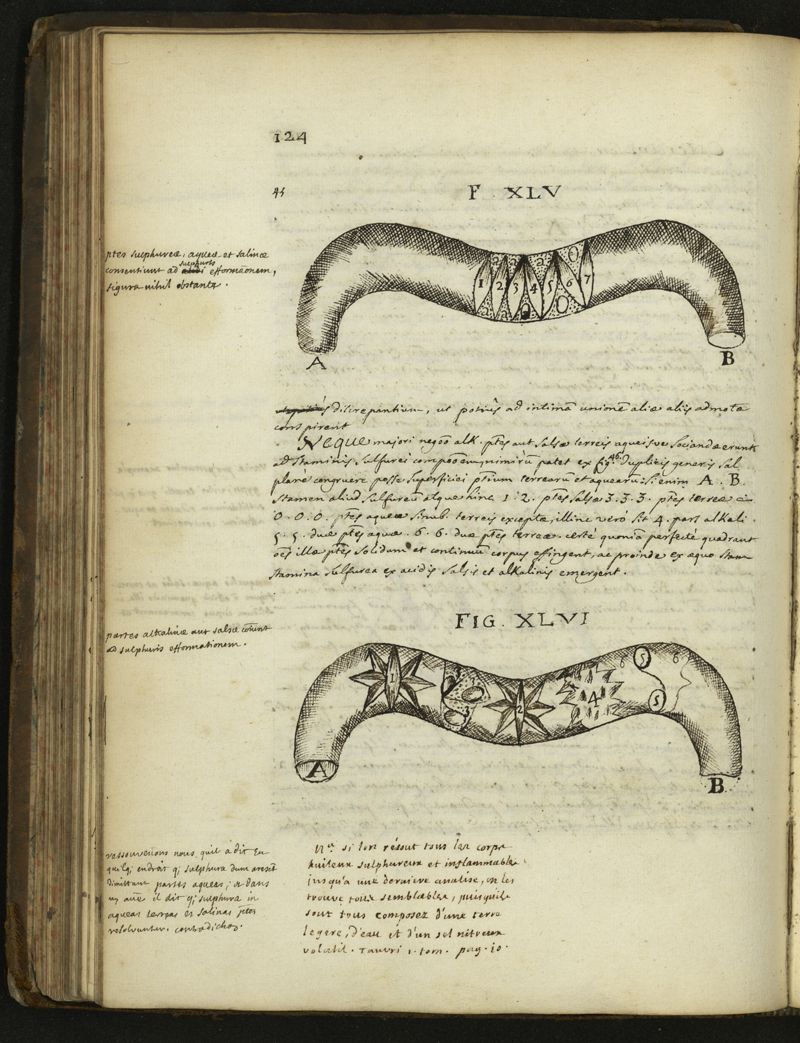 124
45
F. XLV
ptes sulphureæ, aqueæ et salinæ
sulphuris
consentiunt ad efformaonem,
figura nihil obstante.
1 2 3 4 5 6 7
A B
discrepantium, ut potius ad intimã unionẽ aliæ aliis admotæ
conspirent
Neque majori negoõ alk. ptes aut salsæ terreis aqueisve sociandæ erunt
ad staminis sulfurei compaõem, nimirũ patet ex fig. 46. duplicis generis sal
plane congruere posse superficiei ptium terrearũ et aquearũ. Si enim A. B.
stamen aliud sulfureũ atque hinc 1. 2. ptes salsæ 3. 3. 3. ptes terreæ
0. 0. 0. ptes aqueæ sinub. terreis exceptæ, illinc vero sit 4. pars alkali.
5. 5. duæ ptes aquæ. 6. 6. duæ ptes terreæ. certe quoniã perfecte quadrant
oẽs illæ ptes solidum et continuũ corpus effingent, ac proinde ex æquo
stamina sulfurea ex acidis salsis et alkalinis emergent.
FIG. XLVI
partes alkalinæ aut salsæ
ad sulphuris efformationem.
1 3 2 4 5 5 6 6
A B
ressouvenons nous quil a dit en
quelq. endroit q; sulphura dum
dimittunt partes aqueas; & dans
un autre il dit q; sulphura in
aqueas terreas et salinas ptes
resolvuntur. contradiction.
Nte. si lon résout tous les corps
huileux sulphureux et inflammables
jusqu'a une derniere analise, on les
trouve tous semblables, puisquils
sont tous composez d'une terre
legere, d'eau et d'un sel nitreux
volatil. Tauvri 1. tom. pag. 10.